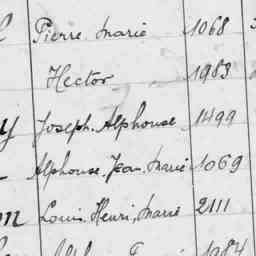 Pierre Marie 1068
Hector 1983
y Joseph. Alphonse 1499
Alphonse. Jean. Marie 1069
n Louis. Henri. Marie 2111
1984